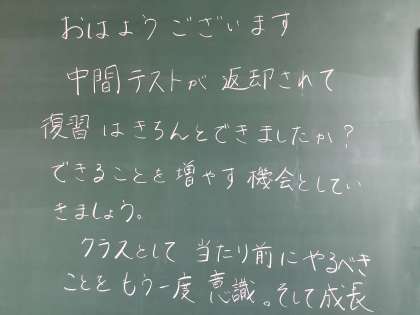 おはようございます
中間テストが返却されて
復習はきちんとできましたか?
できることを増やす機会としてい
きましょう。
クラスとして当たり前にやるべき
ことをもう一度意識。そして成長